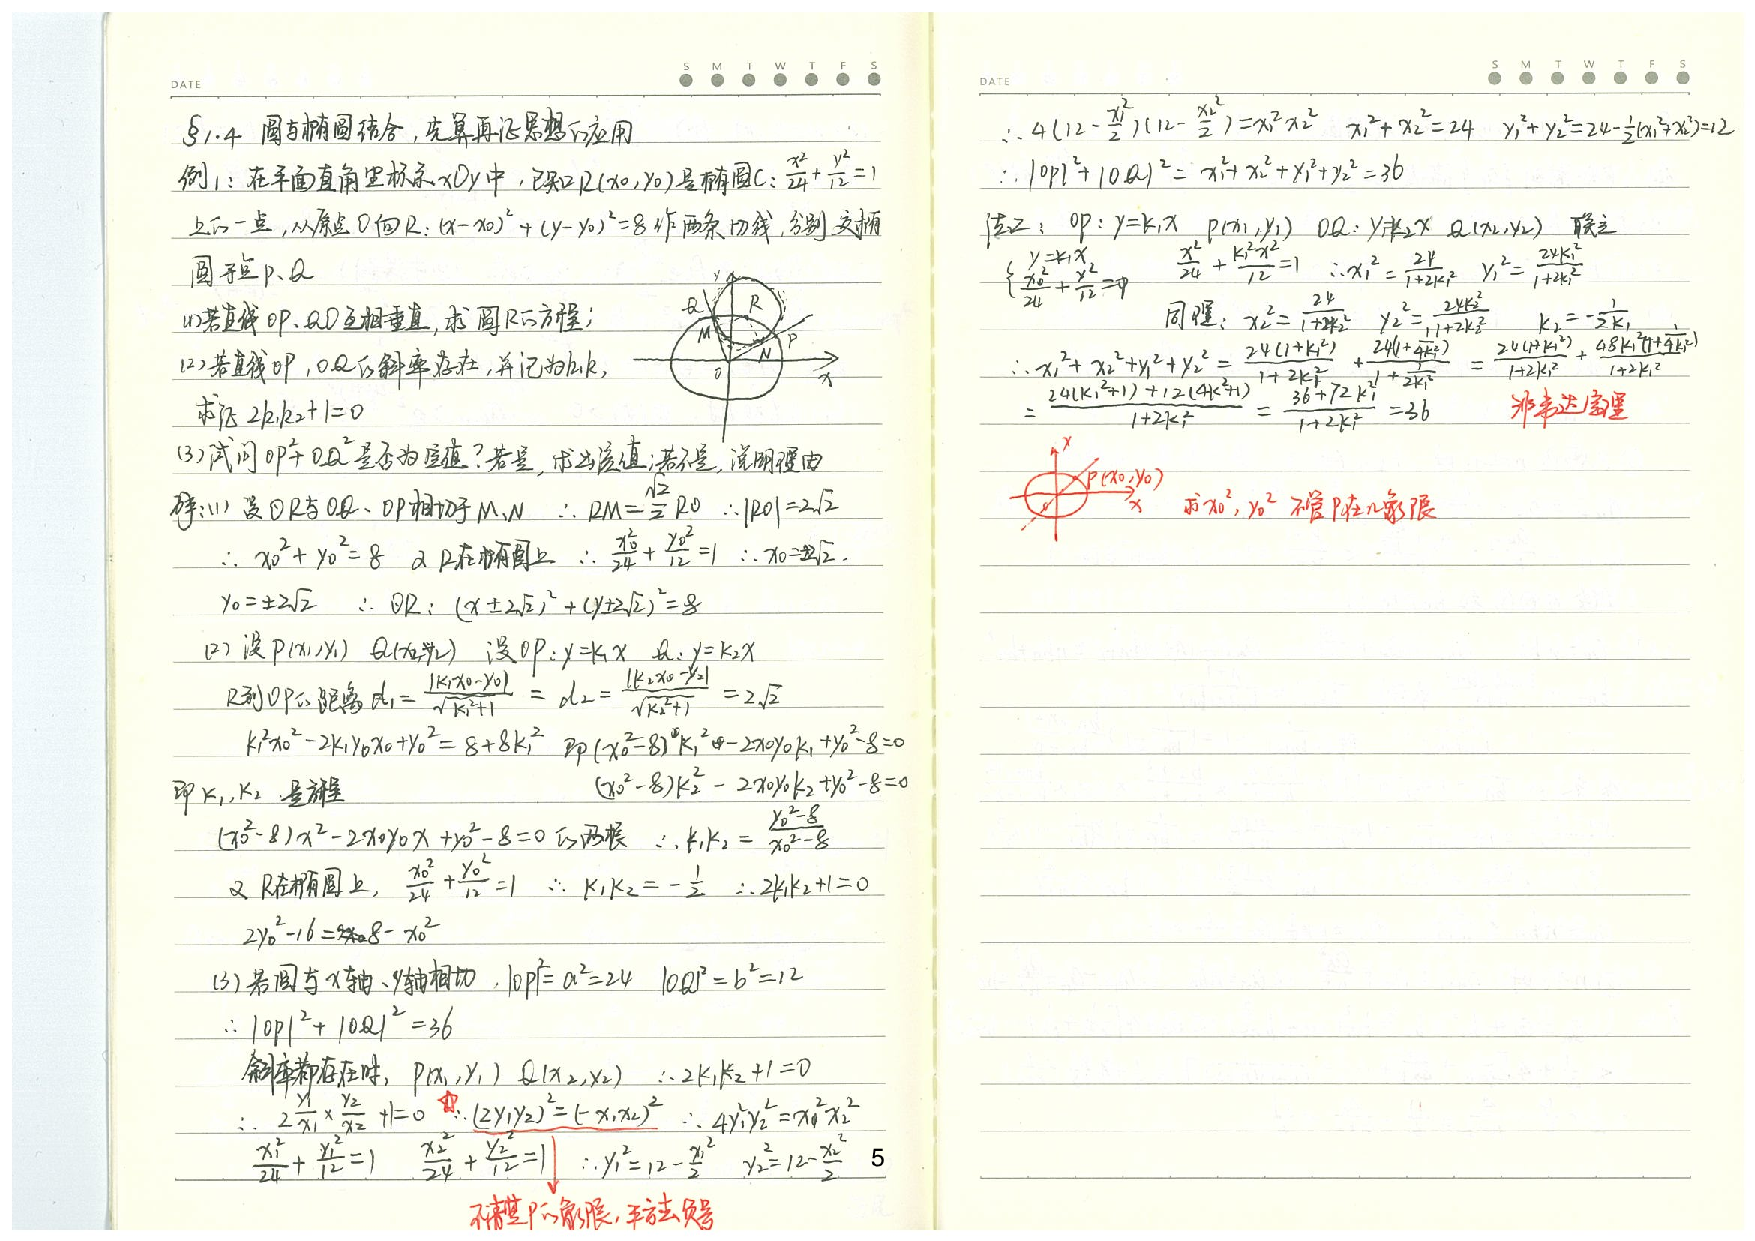 DATE
S M T W T F S
§1.4 圆与椭圆结合,先算再证思想的应用
例1:在平面直角坐标系xOy中,已知R(x0,y0)是椭圆C:x²/24+y²/12=1
上的一点,从原点O向R:(x-x0)²+(y-y0)²=8作两条切线,分别交椭
圆于点P、Q
(1)若直线OP、QO互相垂直,求圆R的方程;
(2)若直线OP,OQ的斜率存在,并记为k1,k2
求证2k1k2+1=0
(3)试问OP²+OQ²是否为定值?若是,求出该值;若不是,说明理由
y
Q R
M P
N
O x
解:(1) 设⊙R与OQ、OP相切于M、N ∴RM=√2/2 RO ∴|RO|=2√2
∴x0²+y0²=8 又R在椭圆上 ∴x0²/24+y0²/12=1 ∴x0=±2√2.
y0=±2√2 ∴⊙R:(x±2√2)²+(y±2√2)²=8
(2) 设P(x1,y1) Q(x2,y2) 设OP:y=k1x Q:y=k2x
R到OP的距离d1=|k1x0-y0|/√(k1²+1)=d2=|k2x0-y2|/√(k2²+1)=2√2
k1²x0²-2k1y0x0+y0²=8+8k1² 即(x0²-8)k1²-2x0y0k1+y0²-8=0
(x0²-8)k2²-2x0y0k2+y0²-8=0
即k1,k2是方程
(x0²-8)x²-2x0y0x+y0²-8=0的两根 ∴k1k2=(y0²-8)/(x0²-8)
又R在椭圆上,x0²/24+y0²/12=1 ∴k1k2=-1/2 ∴2k1k2+1=0
2y0²-16=8-x0²
(3)若圆与x轴、y轴相切,|OP|²=a²=24 |OQ|²=b²=12
∴|OP|²+|OQ|²=36
斜率都存在时,P(x1,y1) Q(x2,y2) ∴2k1k2+1=0
∴2 y1/x1 × y2/x2 +1=0 ☆∴(2y1y2)²=(-x1x2)² ∴4y1²y2²=x1²x2²
x1²/24+y1²/12=1 x2²/24+y2²/12=1 ∴y1²=12-x1²/2 y2²=12-x2²/2
5
不清楚P的象限,平方去负号
DATE
S M T W T F S
∴4(12-x1²/2)(12-x2²/2)=x1²x2² x1²+x2²=24 y1²+y2²=24-1/2(x1²+x2²)=12
∴|OP|²+|OQ|²=x1²+x2²+y1²+y2²=36
法二:OP:y=k1x P(x1,y1) OQ:y=k2x Q(x2,y2) 联立
{y=k1x
x²/24+y²/12=1 x²/24+k1²x²/12=1 ∴x1²=24/(1+2k1²) y1²=24k1²/(1+2k1²)
同理:x2²=24/(1+2k2²) y2²=24k2²/(1+2k2²) k2=-1/2k1
∴x1²+x2²+y1²+y2²=24(1+k1²)/(1+2k1²)+24(1+1/4k1²)/(1+1/2k1²)=24(1+k1²)/(1+2k1²)+48k1²(1+1/4k1²)/(1+2k1²)
=(24(k1²+1)+12(4k1²+1))/(1+2k1²)=(36+72k1²)/(1+2k1²)=36
x
P(x0,y0)
x
求x0²,y0² 不管P在几象限